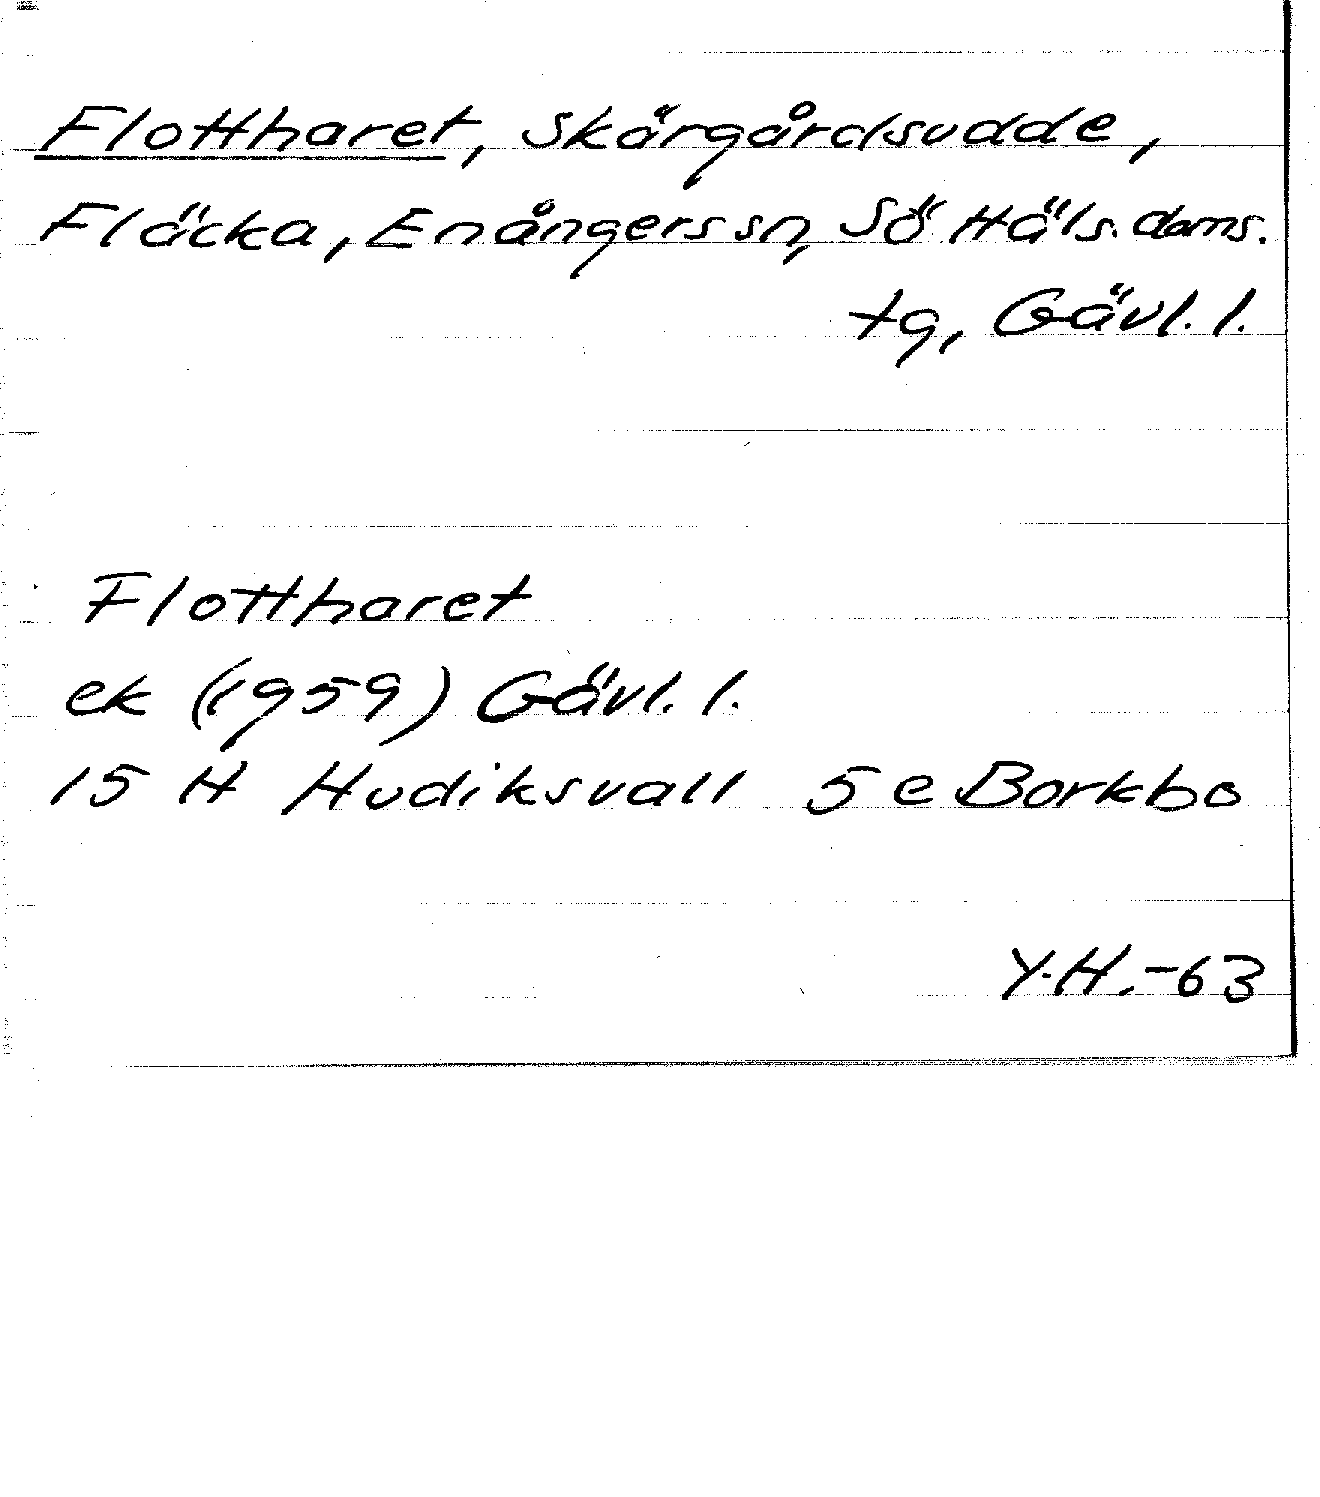 Flottharet, Skärgårdsudde,
Fläcka, Enångers sn, Sö Häls. doms.
tg, Gävl. l.
Flottharet
ek (1959) Gävl. l.
15 H Hudiksvall 5 e Borkbo
Y.H.-63